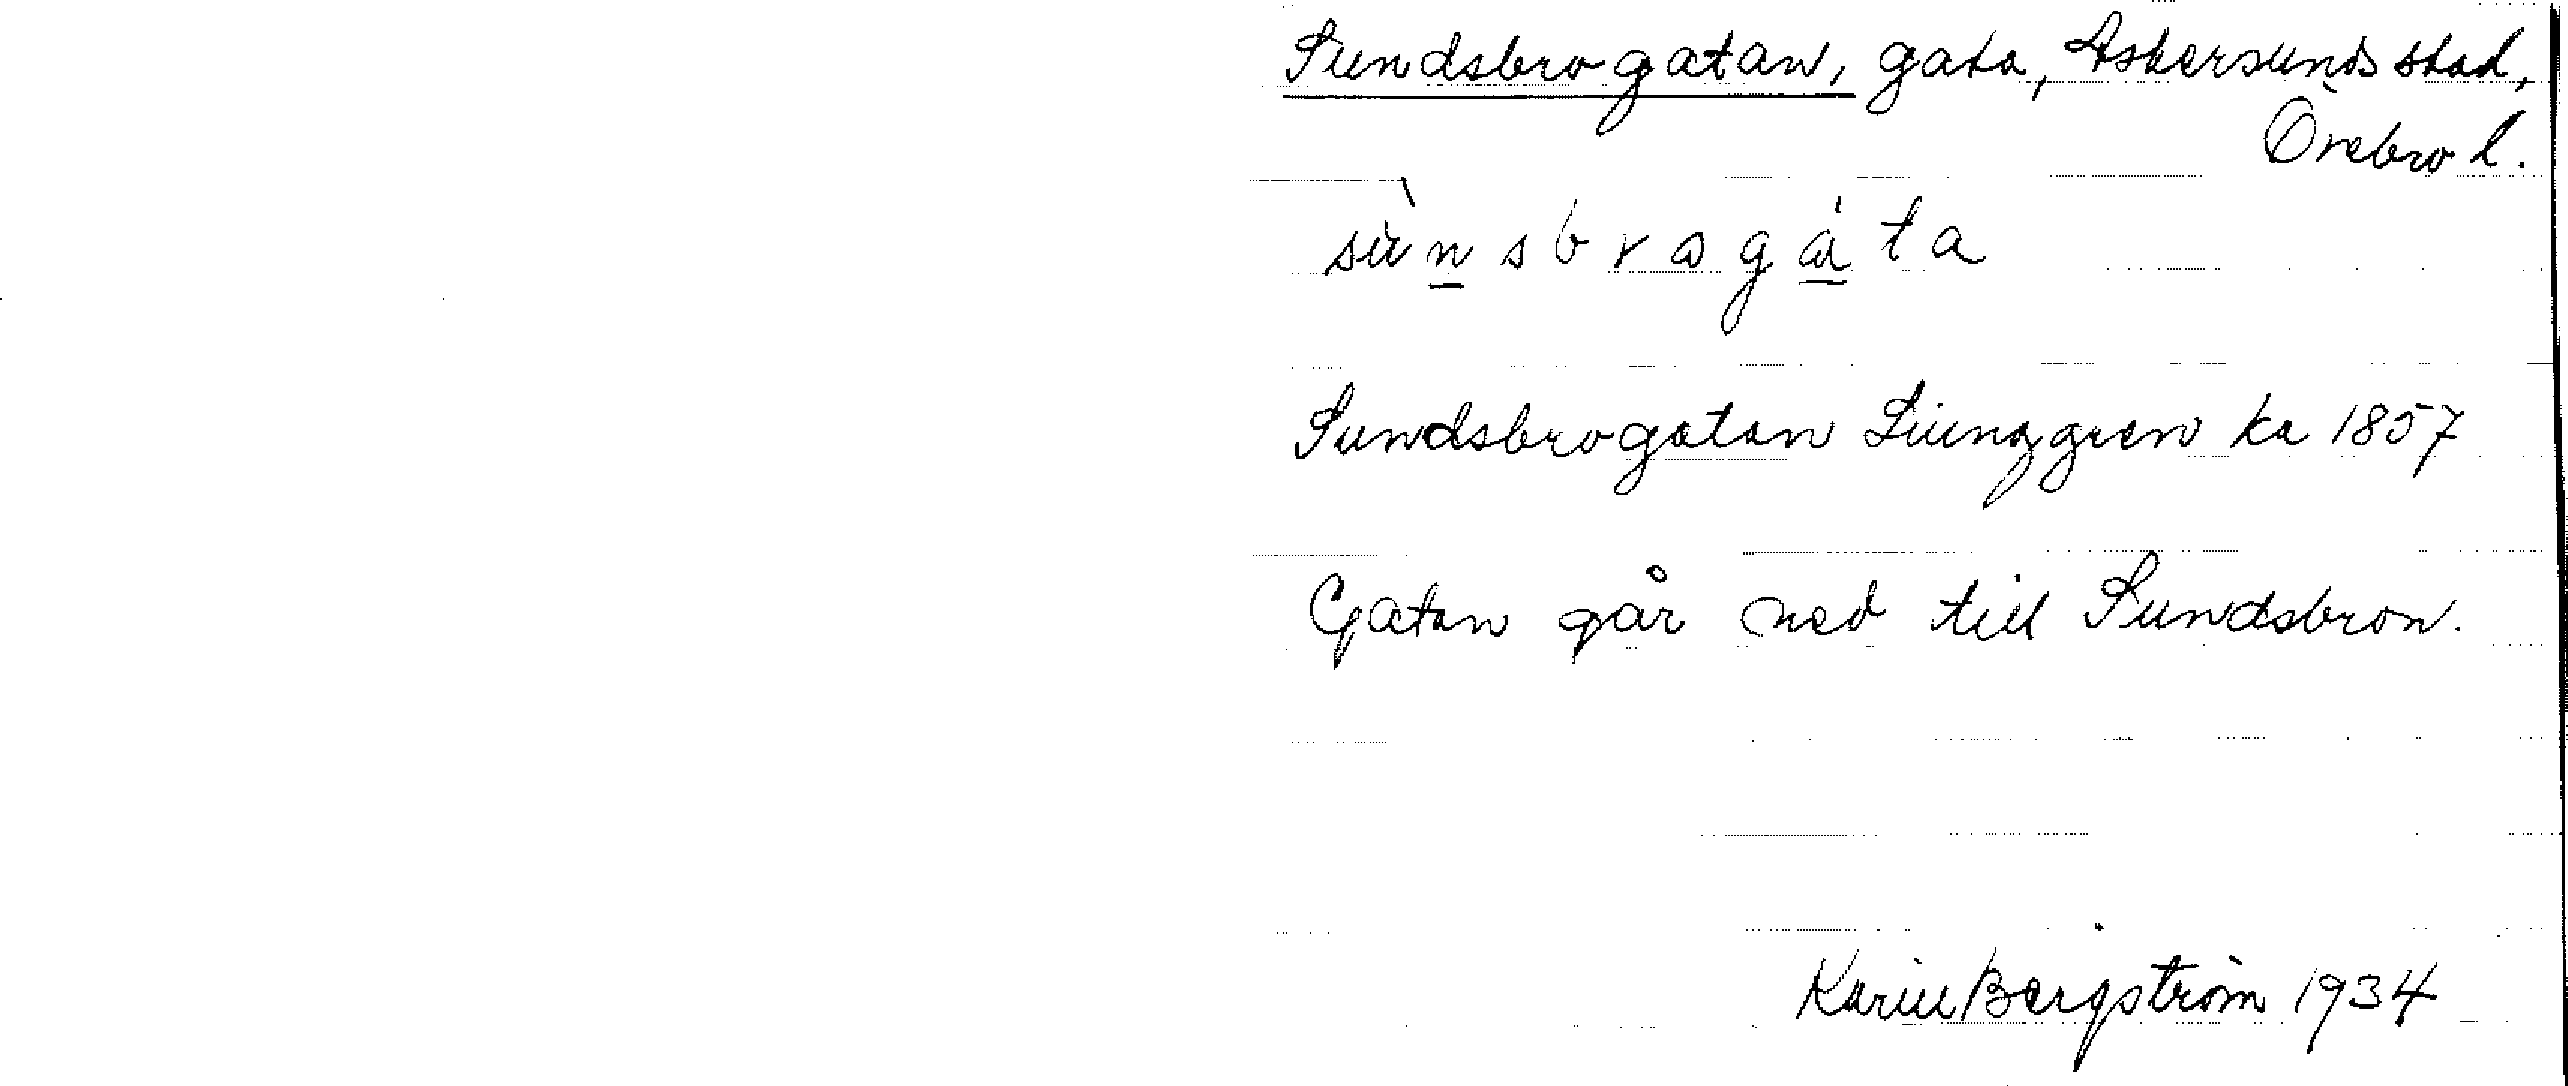 Sundsbrogatan, gata, Askersunds stad,
Örebro l.
sùnsbrogàta
Sundsbrogatan Ljunggren ka 1857
Gatan går ned till Sundsbron.
Karin Bergström 1934